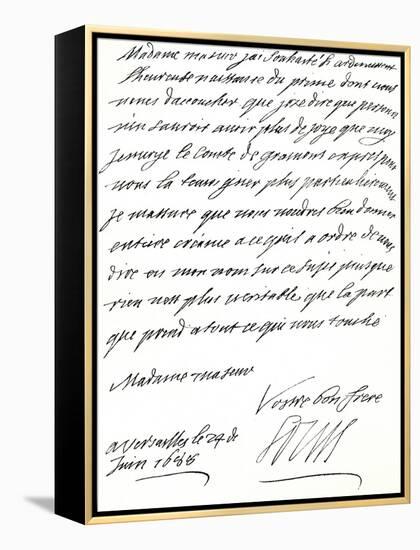 Madame masœur jai souhaité si ardemment
lheureuse naissance du prince dont vous
venes daccoucher que jose dire que personne
nen sauroit avoir plus de joye que moy
jenvoye le Comte de gramont expres pour
vous la temoigner plus particulierement
je massure que vous voudres bien donner
entiere creance a ce quil a ordre de vous
dire en mon nom sur ce sujet puisque
rien nest plus veritable que la part
que prend a tout ce qui vous touche
Madame masœur
Vostre bon frere
Louis
a Versailles le 24 de
Juin 1688